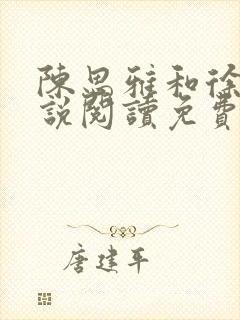 陳思雅和徐
說閱讀免費
唐建平